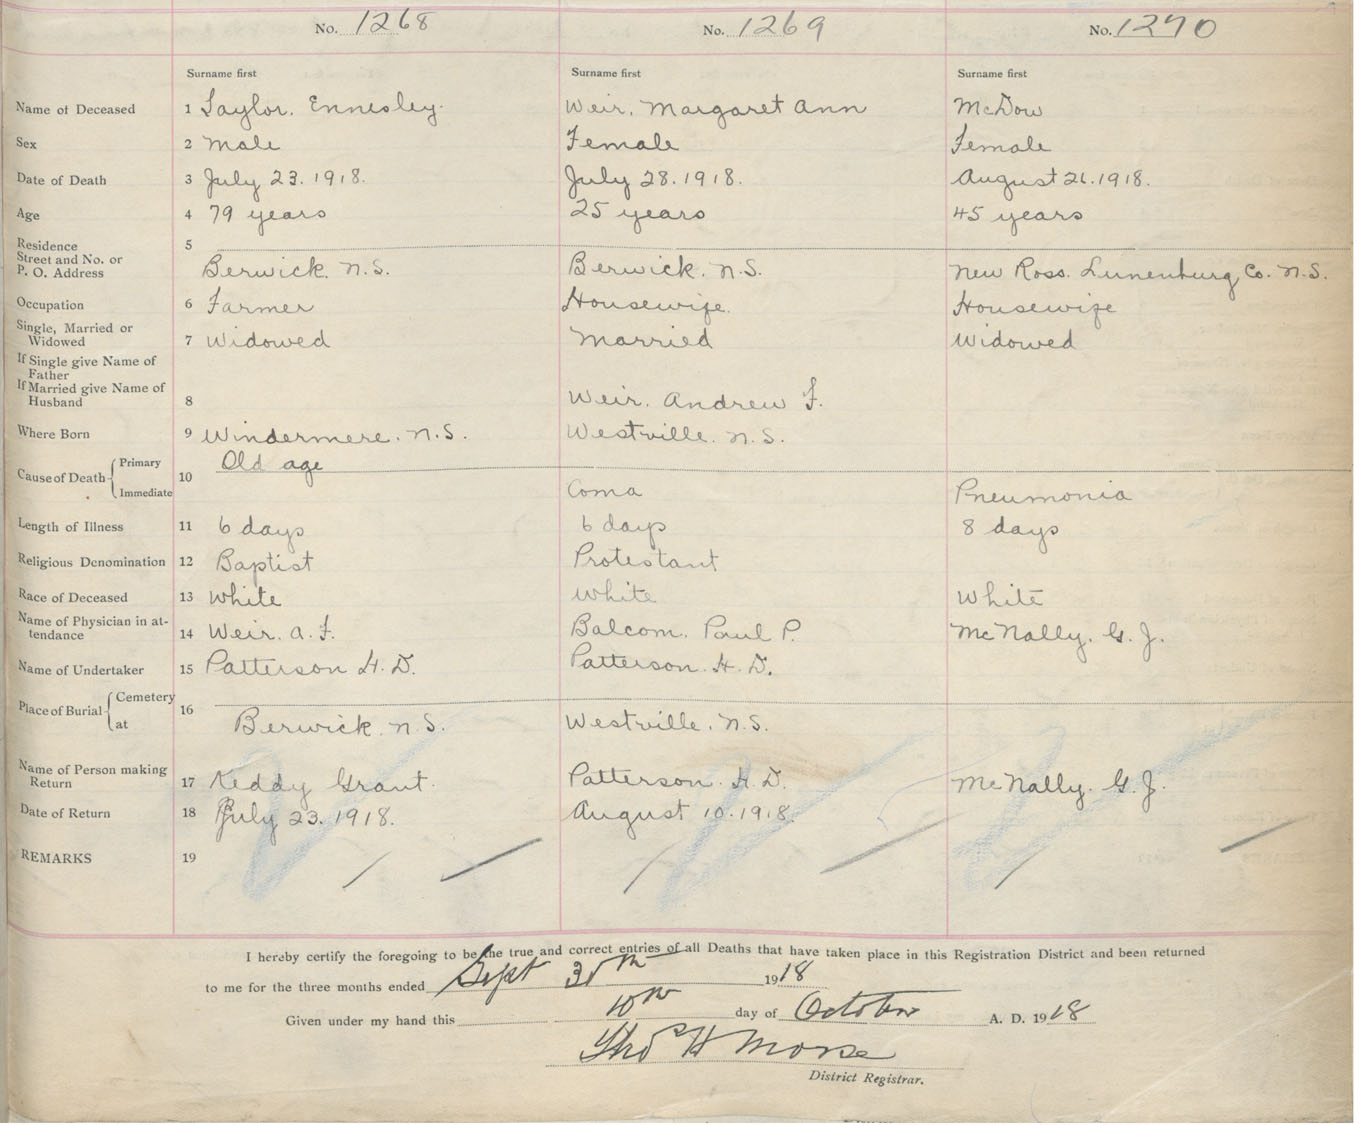 No. 1268 No. 1269 No. 1270
Surname first Surname first Surname first
Name of Deceased 1 Taylor. Ennesley. Weir. Margaret Ann McDow
Sex 2 male Female Female
Date of Death 3 July 23. 1918. July 28. 1918. August 26. 1918.
Age 4 79 years 25 years 45 years
Residence 5
Street and No. or
P. O. Address Berwick. N.S. Berwick. N.S. New Ross. Lunenburg Co. N.S.
Occupation 6 Farmer Housewife. Housewife
Single, Married or
Widowed 7 Widowed Married Widowed
If Single give Name of
Father
If Married give Name of
Husband 8 Weir. Andrew F.
Where Born 9 Windermere. N.S. Westville. N.S.
Cause of Death Primary 10 Old age
Immediate Coma Pneumonia
Length of Illness 11 6 days 6 days 8 days
Religious Denomination 12 Baptist Protestant
Race of Deceased 13 White White White
Name of Physician in at-
tendance 14 Weir. A. F. Balcom. Paul P. McNally. G. J.
Name of Undertaker 15 Patterson H. D. Patterson. H. D.
Place of Burial Cemetery 16
at Berwick. N.S. Westville. N.S.
Name of Person making
Return 17 Keddy Grant. Patterson. H. D. McNally. G. J.
Date of Return 18 July 23. 1918. August 10. 1918.
REMARKS 19
I hereby certify the foregoing to be the true and correct entries of all Deaths that have taken place in this Registration District and been returned
to me for the three months ended Sept 30th 1918
Given under my hand this 10th day of October A. D. 1918
Tho H Morse
District Registrar.